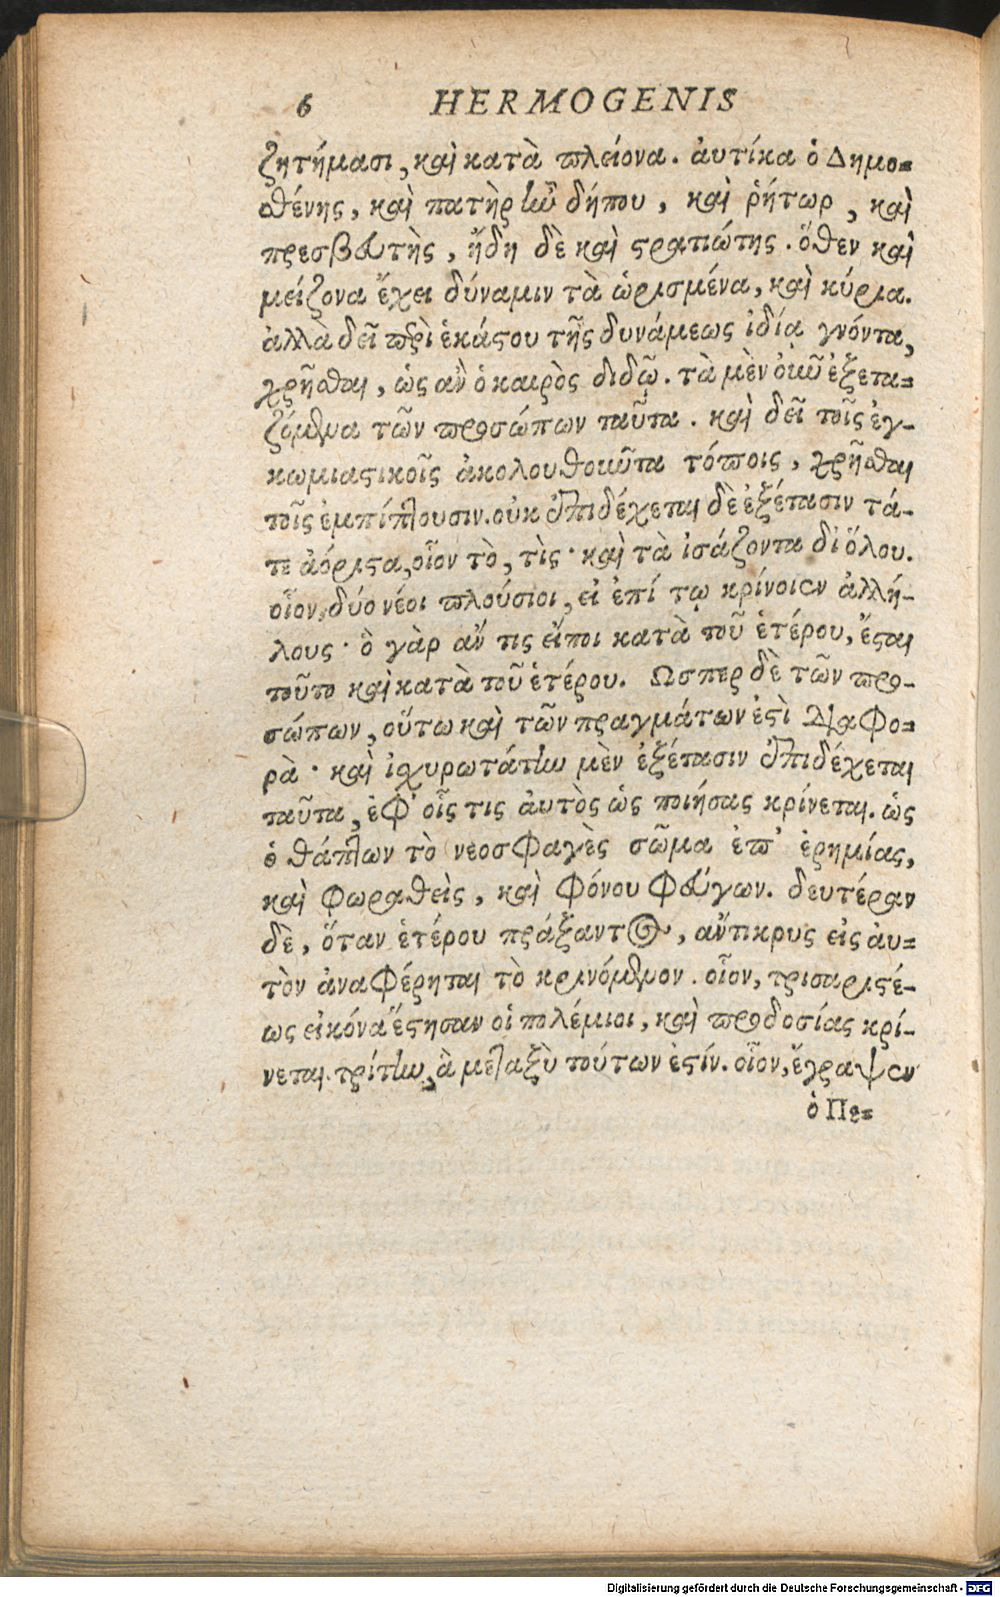 6 HERMOGENIS
ζητήμασι, καὶ κατὰ πλείονα. ἀυτίκα ὁ Δημο-
σθένης, καὶ πατὴρ ἰὼ δήπου, καὶ ῥήτωρ, καὶ
πρεσβευτὴς, ἤδη δὲ καὶ στρατιώτης. ὅθεν καὶ
μείζονα ἔχει δύναμιν τὰ ὡρισμένα, καὶ κύρια.
ἀλλὰ δεῖ περὶ ἑκάστου τῆς δυνάμεως ἰδίᾳ γνόντα,
χρῆσθαι, ὡς ἂν ὁ καιρὸς διδῷ. τὰ μὲν οὖν ἐξετα-
ζόμενα τῶν προσώπων ταῦτα. καὶ δεῖ τοῖς ἐγ-
κωμιαστικοῖς ἀκολουθοῦντα τόποις, χρῆσθαι
τοῖς ἐμπίπτουσιν. οὐκ ἐπιδέχεται δὲ ἐξέτασιν τά-
τε ἀόριστα, οἷον τὸ, τὶς· καὶ τὰ ἰσάζοντα δι' ὅλου.
οἷον, δύο νέοι πλούσιοι, εἰ ἐπί τῳ κρίνοιεν ἀλλή-
λους· ὃ γὰρ ἄν τις εἴποι κατὰ τοῦ ἑτέρου, ἔσται
τοῦτο καὶ κατὰ τοῦ ἑτέρου. Ωσπερ δὲ τῶν προ-
σώπων, οὕτω καὶ τῶν πραγμάτων ἐστὶ διαφο-
ρὰ· καὶ ἰσχυρωτάτην μὲν ἐξέτασιν ἐπιδέχεται
ταῦτα, ἐφ' οἷς τις ἀυτὸς ὡς ποιήσας κρίνεται. ὡς
ὁ θάπτων τὸ νεοσφαγὲς σῶμα ἐπ' ἐρημίας,
καὶ φωραθεὶς, καὶ φόνου φεύγων. δευτέραν
δὲ, ὅταν ἑτέρου πράξαντος, ἄντικρυς εἰς ἀυ-
τὸν ἀναφέρηται τὸ κρινόμενον. οἷον, τρισαριστέ-
ως εἰκόνα ἔστησαν οἱ πολέμιοι, καὶ προδοσίας κρί-
νεται. τρίτην, ἃ μεταξὺ τούτων ἐστίν. οἷον, ἔγραψεν
ὁ Πε-
Digitalisierung gefördert durch die Deutsche Forschungsgemeinschaft - DFG